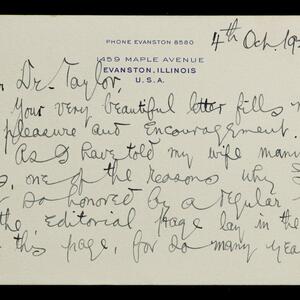 PHONE EVANSTON 8580
1459 MAPLE AVENUE
EVANSTON, ILLINOIS
U.S.A.
4th Oct. 19
Dr. Taylor,
Your very beautiful letter fills
pleasure and Encouragement
As I have told my wife many
, one of the reasons why
so honored by a regular
the Editorial page lay in the
this page, for so many yea